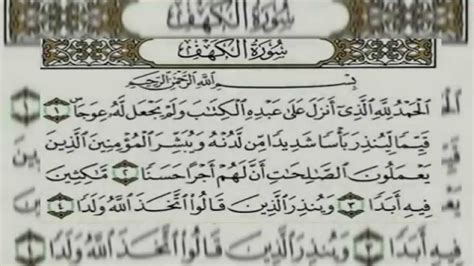 سُورَةُ الكَهْفِ
سُورَةُ الكَهْفِ
بِسْمِ اللَّهِ الرَّحْمَٰنِ الرَّحِيمِ
الْحَمْدُ لِلَّهِ الَّذِي أَنزَلَ عَلَىٰ عَبْدِهِ الْكِتَابَ وَلَمْ يَجْعَل لَّهُ عِوَجًا ١
قَيِّمًا لِّيُنذِرَ بَأْسًا شَدِيدًا مِّن لَّدُنْهُ وَيُبَشِّرَ الْمُؤْمِنِينَ الَّذِينَ
يَعْمَلُونَ الصَّالِحَاتِ أَنَّ لَهُمْ أَجْرًا حَسَنًا ٢ مَّاكِثِينَ
فِيهِ أَبَدًا ٣ وَيُنذِرَ الَّذِينَ قَالُوا اتَّخَذَ اللَّهُ وَلَدًا ٤
فِيهِ أَبَدًا ٣ وَيُنذِرَ الَّذِينَ قَالُوا اتَّخَذَ اللَّهُ وَلَدًا